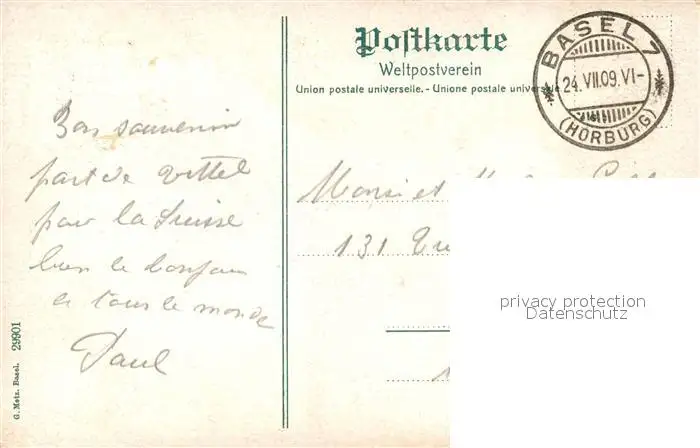 Postkarte
Weltpostverein
Union postale universelle. - Unione postale universale
BASEL 7
24.VII.09.VI-
(HORBURG)
Bon souvenir
part de Vittel
pour la Suisse
bien le bonjour
a tous le monde
Paul
Monsi et
131
privacy protection
Datenschutz
G. Metz, Basel. 29901